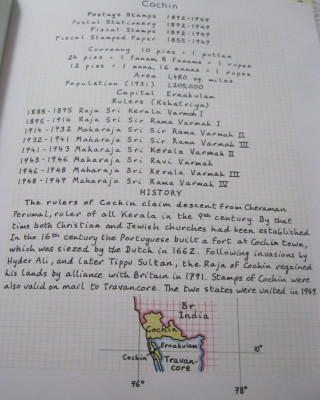 Cochin
Postage Stamps 1892-1949
Postal Stationery 1892-1949
Fiscal Stamps 1892-1949
Fiscal Stamped Paper 1855-1949
Currency 10 pies = 1 puttan
24 pies = 1 fanam 8 fanams = 1 rupee
12 pies = 1 anna 16 annas = 1 rupee
Area 1,480 sq. miles
Population (1931) 1,205,000
Capital Ernakulam
Rulers (Kshatriya)
1888-1895 Raja Sri Kerala Varmah I
1895-1914 Raja Sri Rama Varmah I
1914-1932 Maharaja Sri Sir Rama Varmah II
1932-1941 Maharaja Sri Sir Rama Varmah III
1941-1943 Maharaja Sri Kerala Varmah II
1943-1946 Maharaja Sri Ravi Varmah
1946-1948 Maharaja Sri Kerala Varmah III
1948-1949 Maharaja Sri Rama Varmah IV
HISTORY
The rulers of Cochin claim descent from Cheraman
Perumal, ruler of all Kerala in the 9th century. By that
time both Christian and Jewish churches had been established.
In the 16th century the Portuguese built a fort at Cochin town,
which was siezed by the Dutch in 1662. Following invasions by
Hyder Ali, and later Tippu Sultan, the Raja of Cochin regained
his lands by alliance with Britain in 1791. Stamps of Cochin were
also valid on mail to Travancore. The two states were united in 1949.
Br.
India
Cochin
Ernakulam
Cochin
Travan-
core
10°
76°
78°